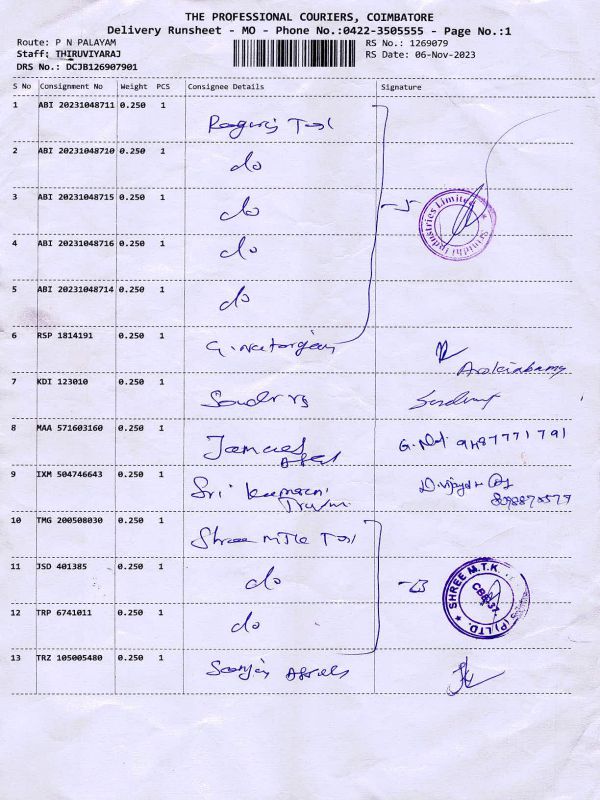 THE PROFESSIONAL COURIERS, COIMBATORE
Delivery Runsheet - MO - Phone No.:0422-3505555 - Page No.:1
Route: P N PALAYAM RS No.: 1269079
Staff: THIRUVIYARAJ RS Date: 06-Nov-2023
DRS No.: DCJB126907901
S No Consignment No Weight PCS Consignee Details Signature
1 ABI 20231048711 0.250 1
2 ABI 20231048710 0.250 1 do
3 ABI 20231048715 0.250 1 do
4 ABI 20231048716 0.250 1 do
5 ABI 20231048714 0.250 1 do
Industries Limited
6 RSP 1814191 0.250 1
7 KDI 123010 0.250 1
8 MAA 571603160 0.250 1 9487771791
9 IXM 504746643 0.250 1 Sri
10 TMG 200508030 0.250 1 Shree
11 JSD 401385 0.250 1 do
SHREE M.T.K. (P) LTD.
12 TRP 6741011 0.250 1 do
13 TRZ 105005480 0.250 1